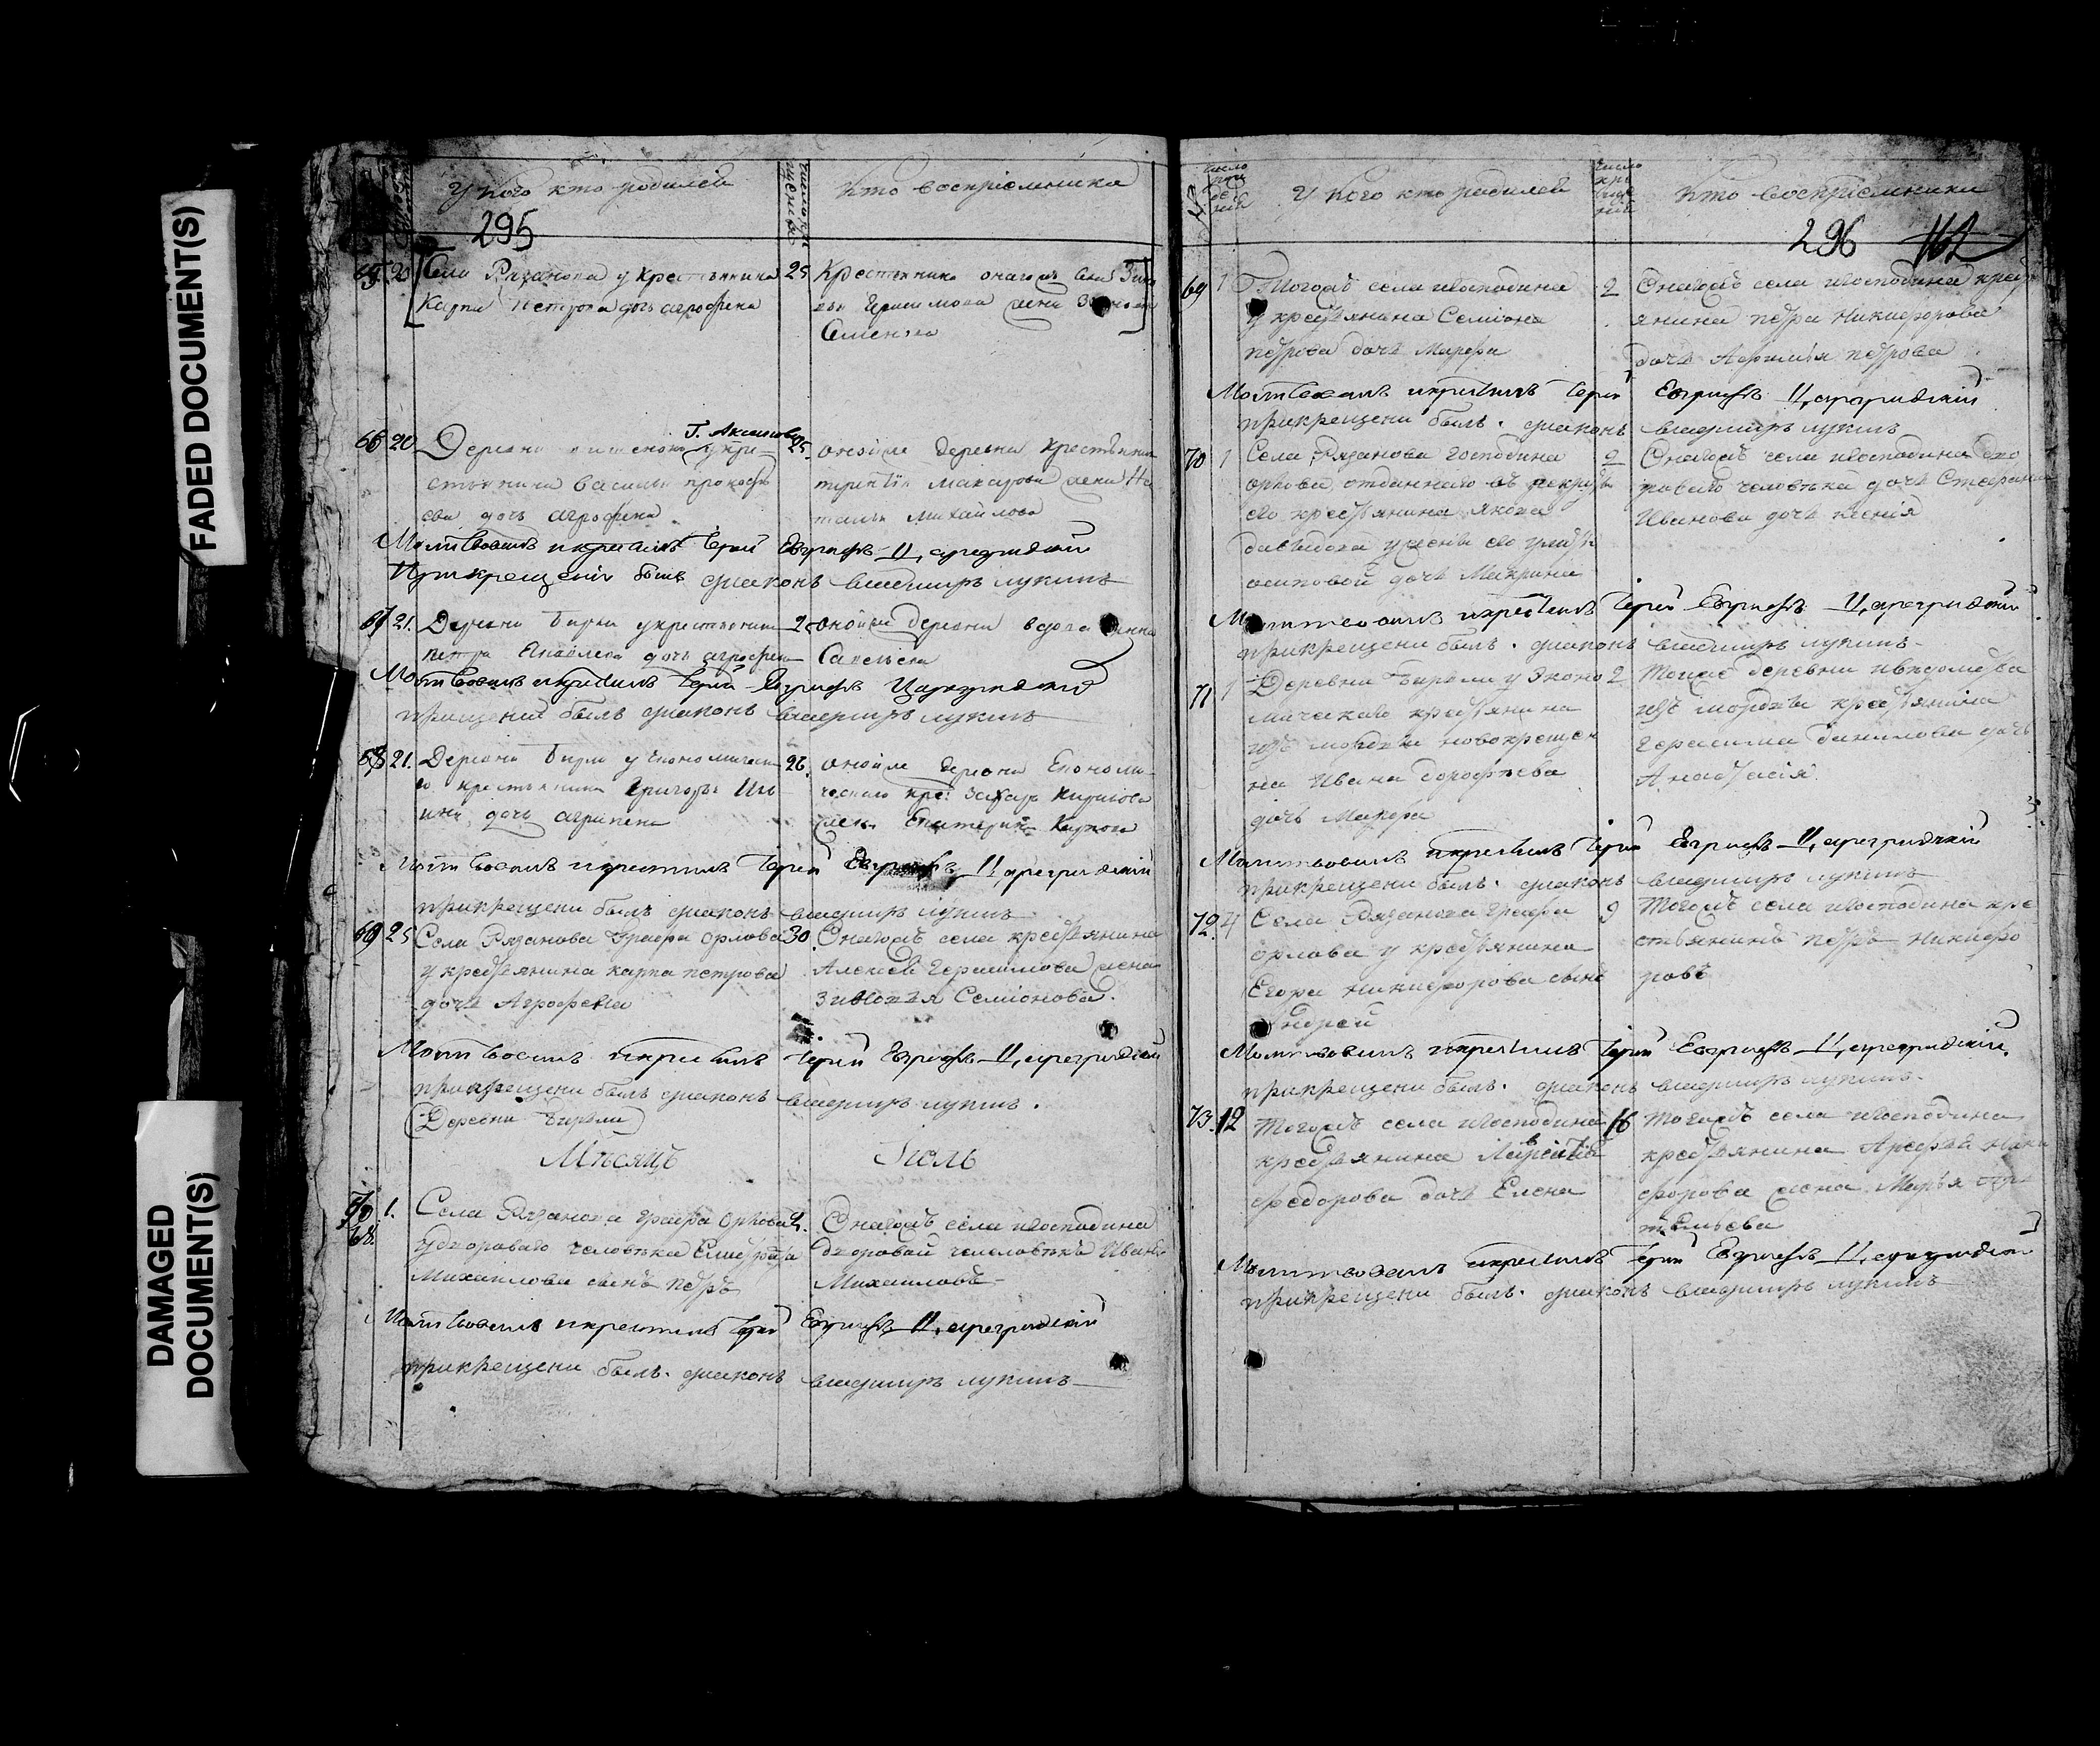 FADED DOCUMENT(S)
DAMAGED
DOCUMENT(S)
У кого кто родился
Кто восприемники
295
20
Села Рязанова у крестьянина
Карпа Петрова дочь агрофена
25
Крестьянина
Семенова
66 20
Деревни
Г.
у кре
стьянина василья прокофь
ева дочь агрофена
25
оной же деревни крестьянина
макарова жена На
талья михайлова
Молитвовалъ и крестилъ Іерей Евграфъ Цареградскій
При крещеніи былъ диаконъ владимиръ лукинъ
21.
Деревни Бирли у крестьянина
петра дочь агрофена
оной же деревни вдова
Савельева
Молитвовалъ и крестилъ Іерей Евграфъ Цареградскій
при крещении былъ диаконъ владимиръ лукинъ
21.
Деревни Бирли у Економическа
го крестьянина Григорья Иль
ина дочь агрипена
26.
оной же деревни Економи
ческаго кре: Захара Кирилова
жена Екатерина Карпова
Молитвовалъ и крестилъ Іерей Евграфъ Цареградскій
при крещени былъ диаконъ владимиръ лукинъ
25
Села Рязанова Графа Орлова
у крестьянина карпа петрова
дочь Агрофена
30.
Онагожъ села крестьянина
Алексея Герасимова жена
Семионова.
Молитвовалъ и крестилъ Іерей Евграфъ Цареградскій
при крещени былъ диаконъ владимиръ лукинъ.
(Деревни Бирли)
Месяцъ Іюль
68.
1.
Села Рязанова графа Орлова
у двороваго человека
Михаилова сынъ петръ
2.
Онагожъ села и господина
дворовой человекъ Иванъ
Михаиловъ
Молитвовалъ и крестилъ Іерей Евграфъ Цареградскій
при крещени былъ. диаконъ владимиръ лукинъ
У кого кто родился
Кто восприемники
296
69 1
Тогожъ села и господина
у крестьянина Семиона
петрова дочь Марфа
2
Онагожъ села и господина крест
янина петра Никифорова
дочь Афимья петрова
Молитвовалъ и крестилъ Іерей Евграфъ Цареградскій
при крещени былъ. диаконъ владимиръ лукинъ
70 1
Села Рязанова господина
орлова отданнаго въ рекруты
его крестьянина Якова
давыдова у жены его
осиповой дочь Макрина
2
Онагожъ села и господина дво
роваго человека дочь Стефана
Иванова дочь ксения
Молитвовалъ и крестилъ Іерей Евграфъ Цареградскій
при крещени былъ. диаконъ владимиръ лукинъ
71 1
Деревни Бирли у Эконо
мическаго крестьянина
изъ мордвы новокрещен
на Ивана дорофеева
дочь Марфа
2
Тояже деревни и ведомства
изъ мордвы крестьянина
Герасима данилова дочь
Анастасія.
Молитвовалъ и крестилъ Іерей Евграфъ Цареградскій
при крещени былъ. диаконъ владимиръ лукинъ
72. 4
Села Рязанова графа
орлова у крестьянина
Егора Никифорова сынъ
Андрей
9
Тогожъ села и господина кре
стьянинъ петръ Никифо
ровъ
Молитвовалъ и крестилъ Іерей Евграфъ Цареградскій.
при крещени былъ. диаконъ владимиръ лукинъ.
73. 12
Тогожъ села и господина
крестьянина
федорова дочь Елена
16
Тогожъ села и господина
крестьянина Арефья Ники
форова жена Марья
Молитвовалъ и крестилъ Іерей Евграфъ Цареградскій
при крещени былъ. диаконъ владимиръ лукинъ